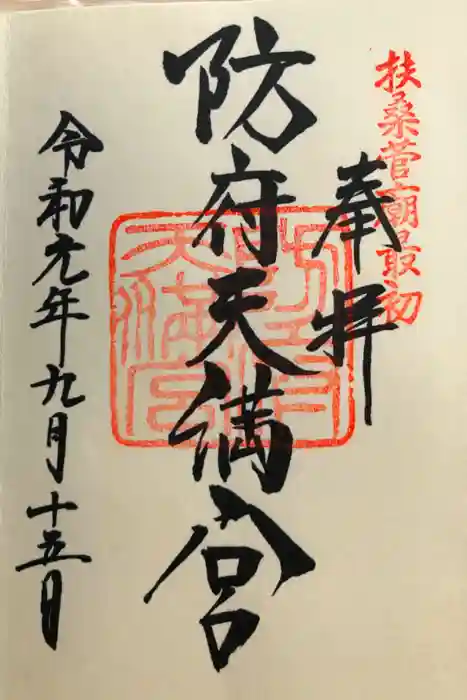 扶桑菅廟最初
奉拝
防府天満宮
令和元年九月十五日